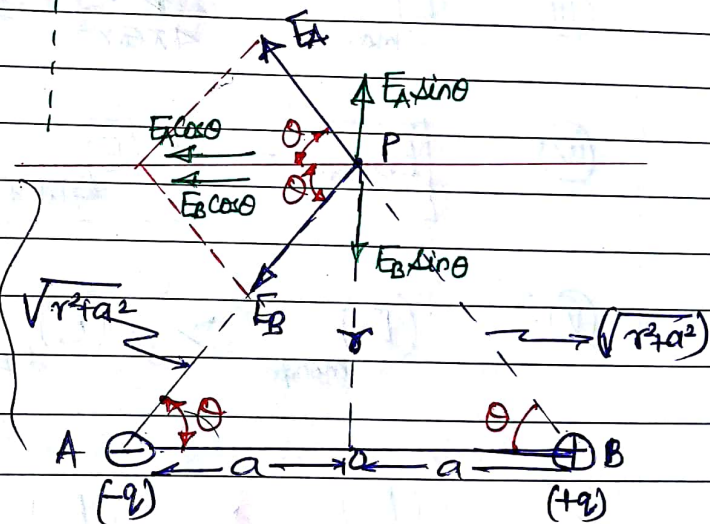 E_A
E_A sinθ
E_A cosθ
θ
P
θ
E_B cosθ
E_B sinθ
E_B
√r²+a²
r
(√r²+a²)
θ
θ
A
⊖
a
O
a
⊕
B
(-q)
(+q)